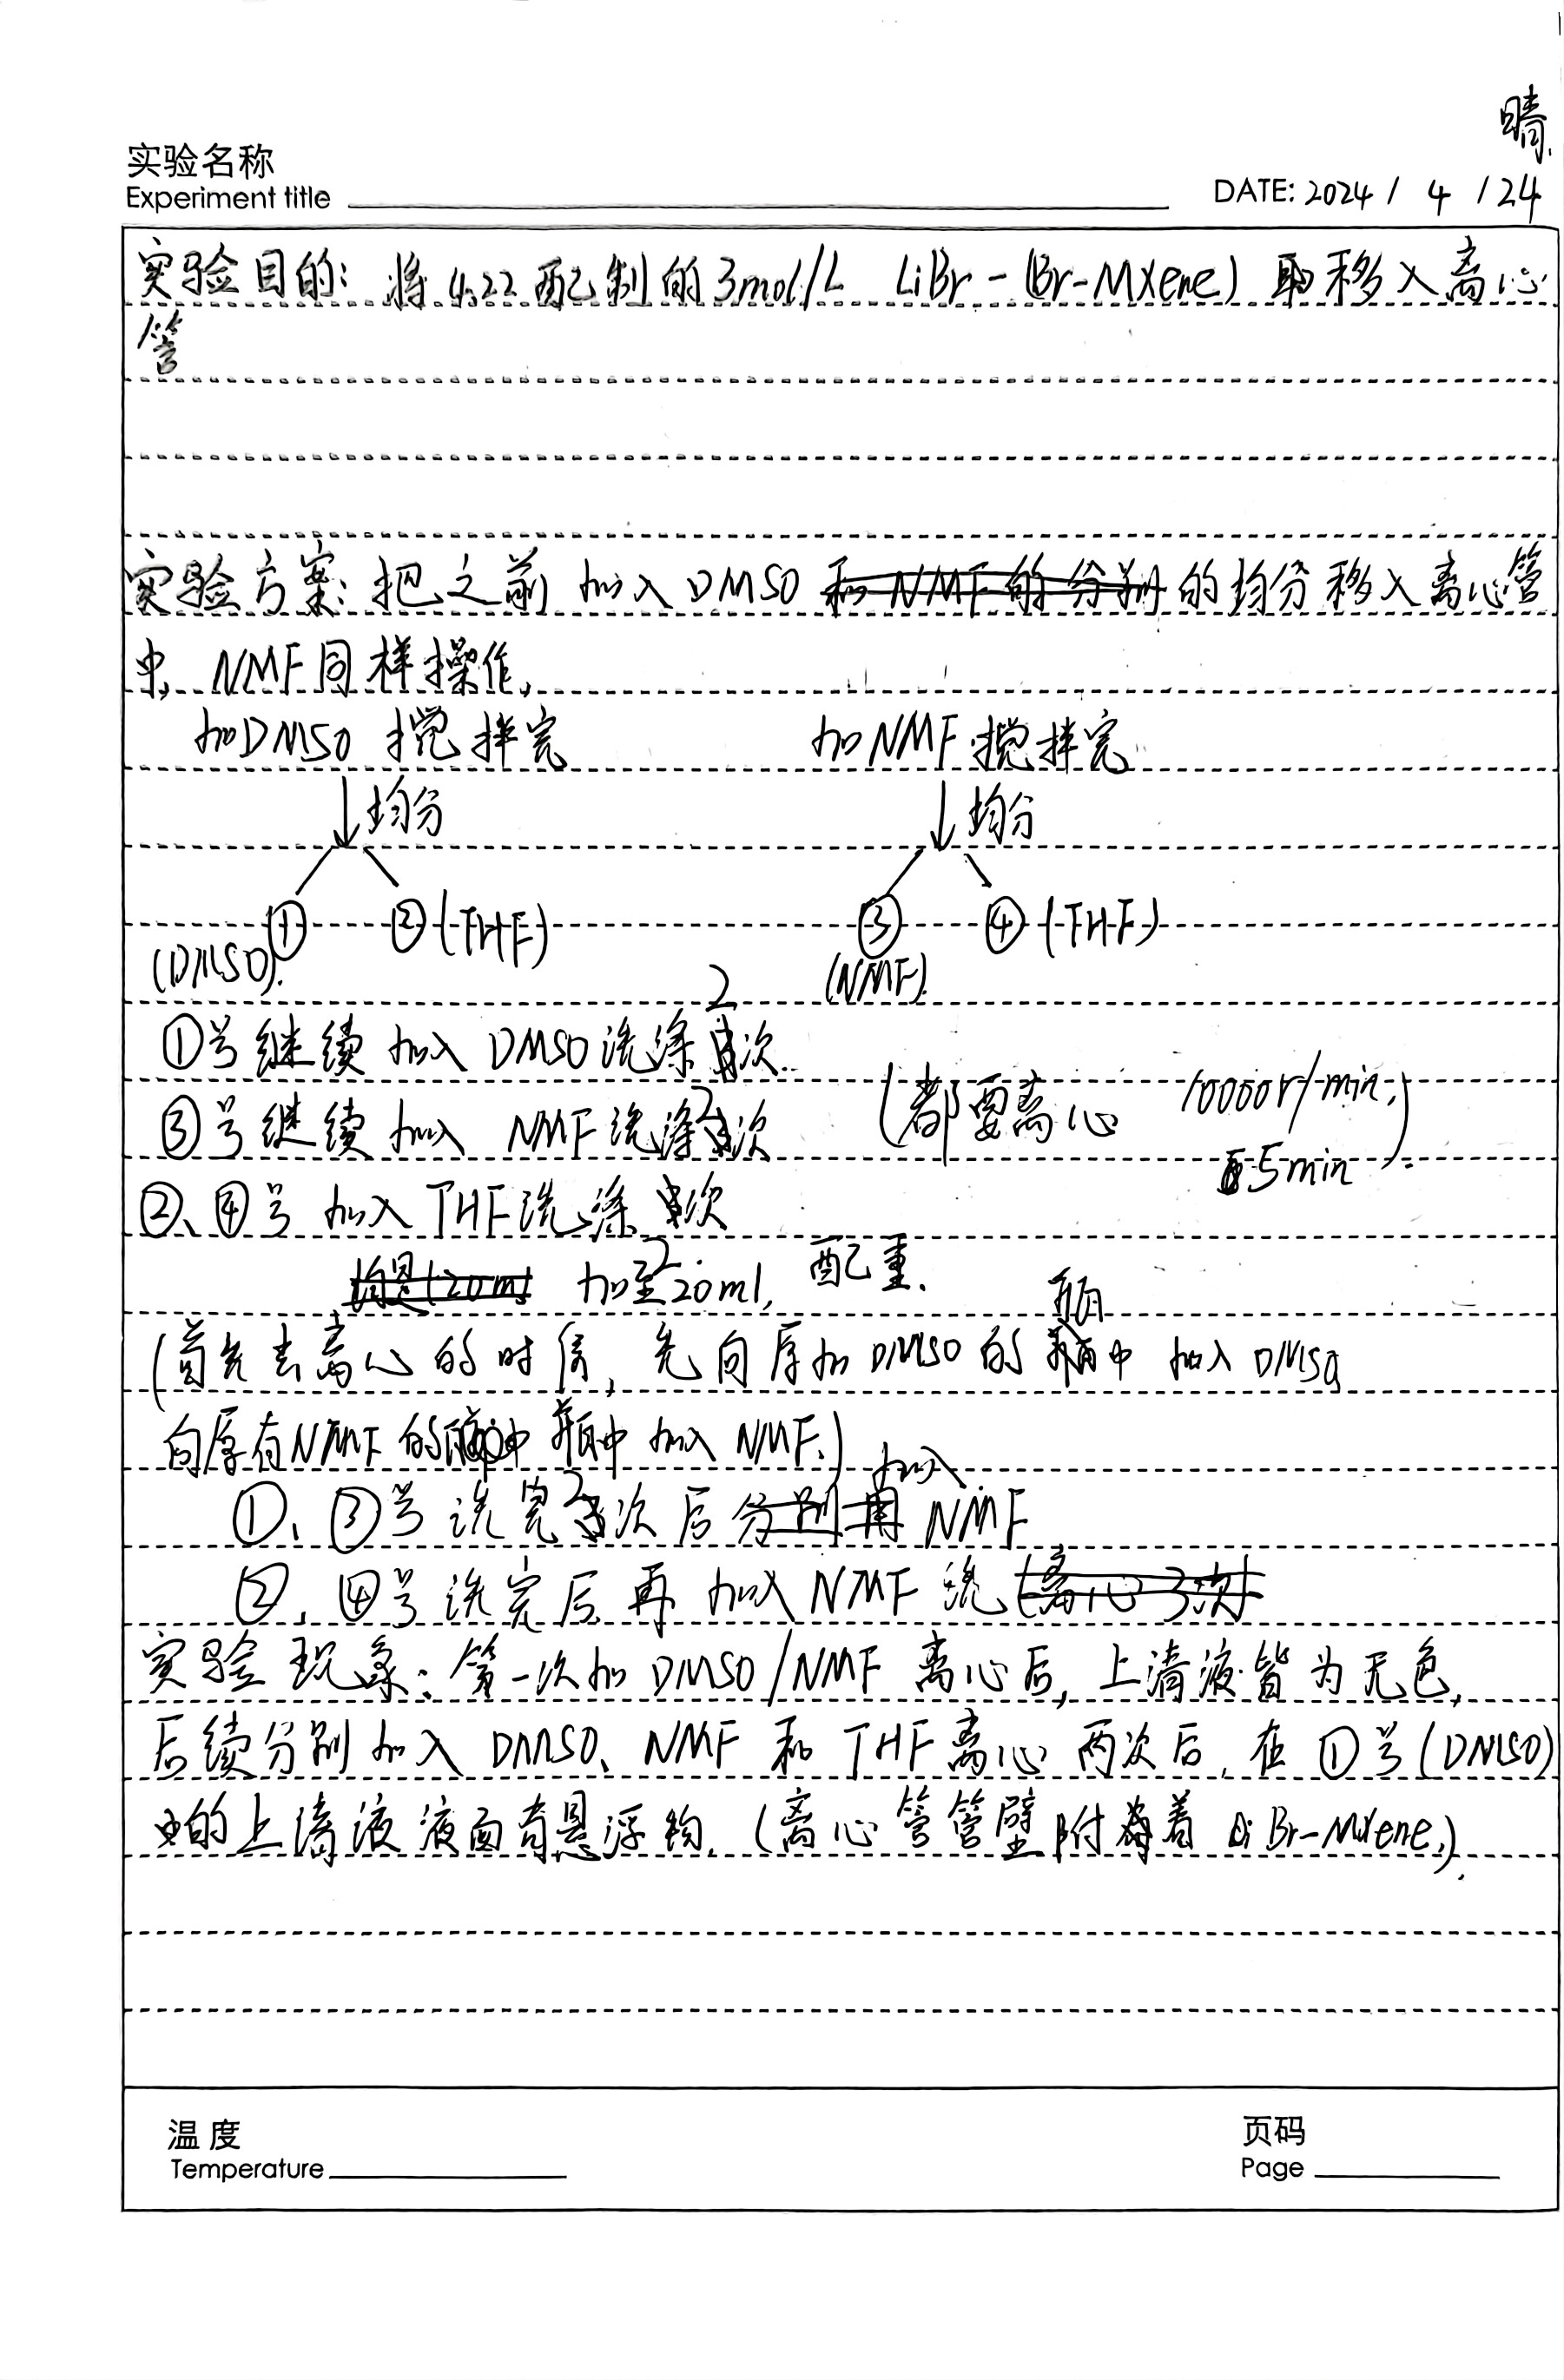 晴.
实验名称
Experiment title
DATE: 2024 / 4 / 24
实验目的: 将 4.22 配制的 3mol/L LiBr-(Br-MXene) 取移入离心
管
实验方案: 把之前 加入 DMSO 和 NMF 的 分别 的 均分 移入 离心管
中, NMF 同样操作,
加DMSO 搅拌完 加NMF 搅拌完
↓均分 ↓均分
① ②(THF) ③ ④(THF)
(DMSO). (NMF).
①号继续 加入 DMSO 洗涤 2次.
(都要离心 10000r/min,
③号继续 加入 NMF 洗涤2次
5min).
②、④号 加入 THF 洗涤 次
2
均是(20ml 加至20ml, 配重.
(首先去离心的时候, 先向原加DMSO的 瓶中 加入 DMSO,
向原有NMF的 瓶中 加入 NMF.)
①、③号 洗完2次后 分别 用 加入 NMF
②、④号洗完后 再 加入 NMF 洗 (离心3次)
实验现象: 第一次加 DMSO/NMF 离心后, 上清液皆为无色,
后续分别加入 DMSO、NMF 和 THF 离心 两次后, 在 ①号(DMSO)
中的上清液液面有悬浮物. (离心管管壁附着 Br-MXene.).
温度
Temperature
页码
Page